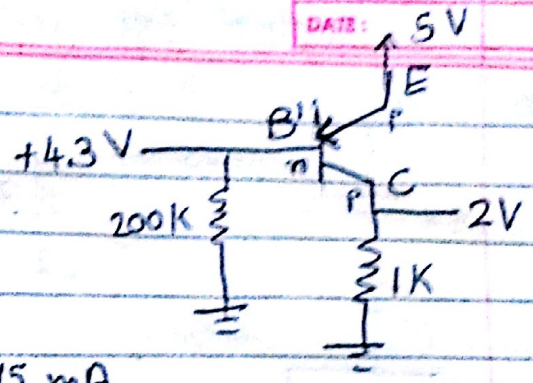 DATE:
5 V
E
P
B
+4.3 V
n
C
P
2V
200K
1K
15 mA